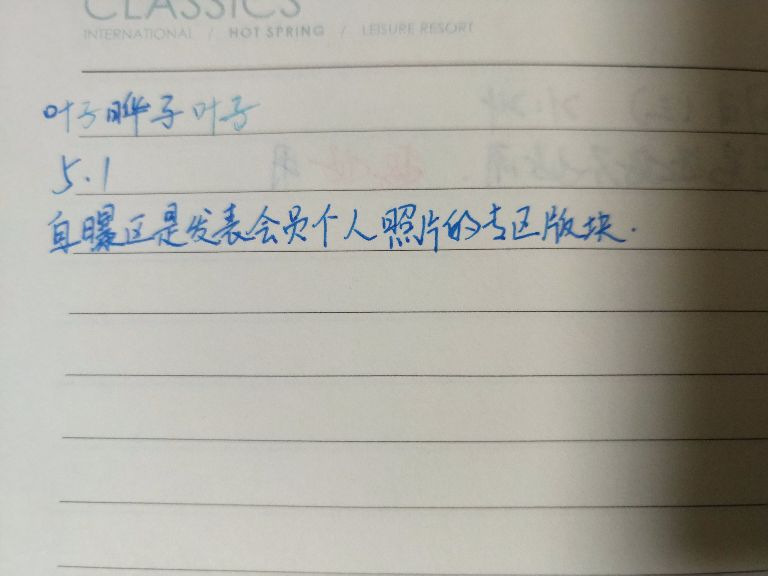 CLASSICS
INTERNATIONAL / HOT SPRING / LEISURE RESORT
叶子 叶子
5.1
自曝区是发表会员个人照片的专区版块.